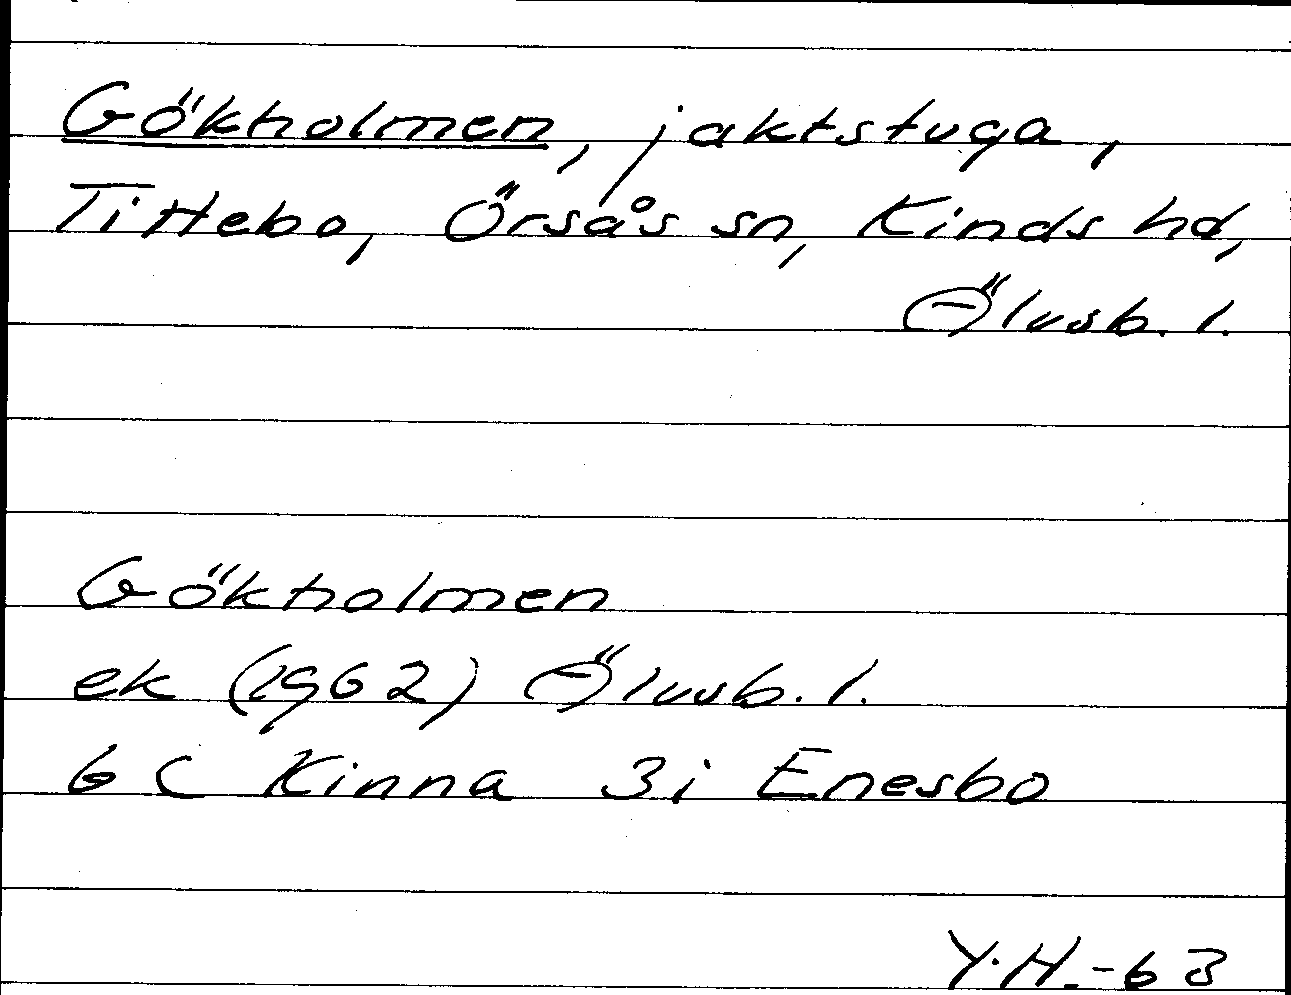 Gökholmen, jaktstuga,
Tittebo, Örsås sn, Kinds hd,
Älvsb. l.
Gökholmen
ek (1962) Älvsb. l.
6 C Kinna 3i Enesbo
Y.H.-63